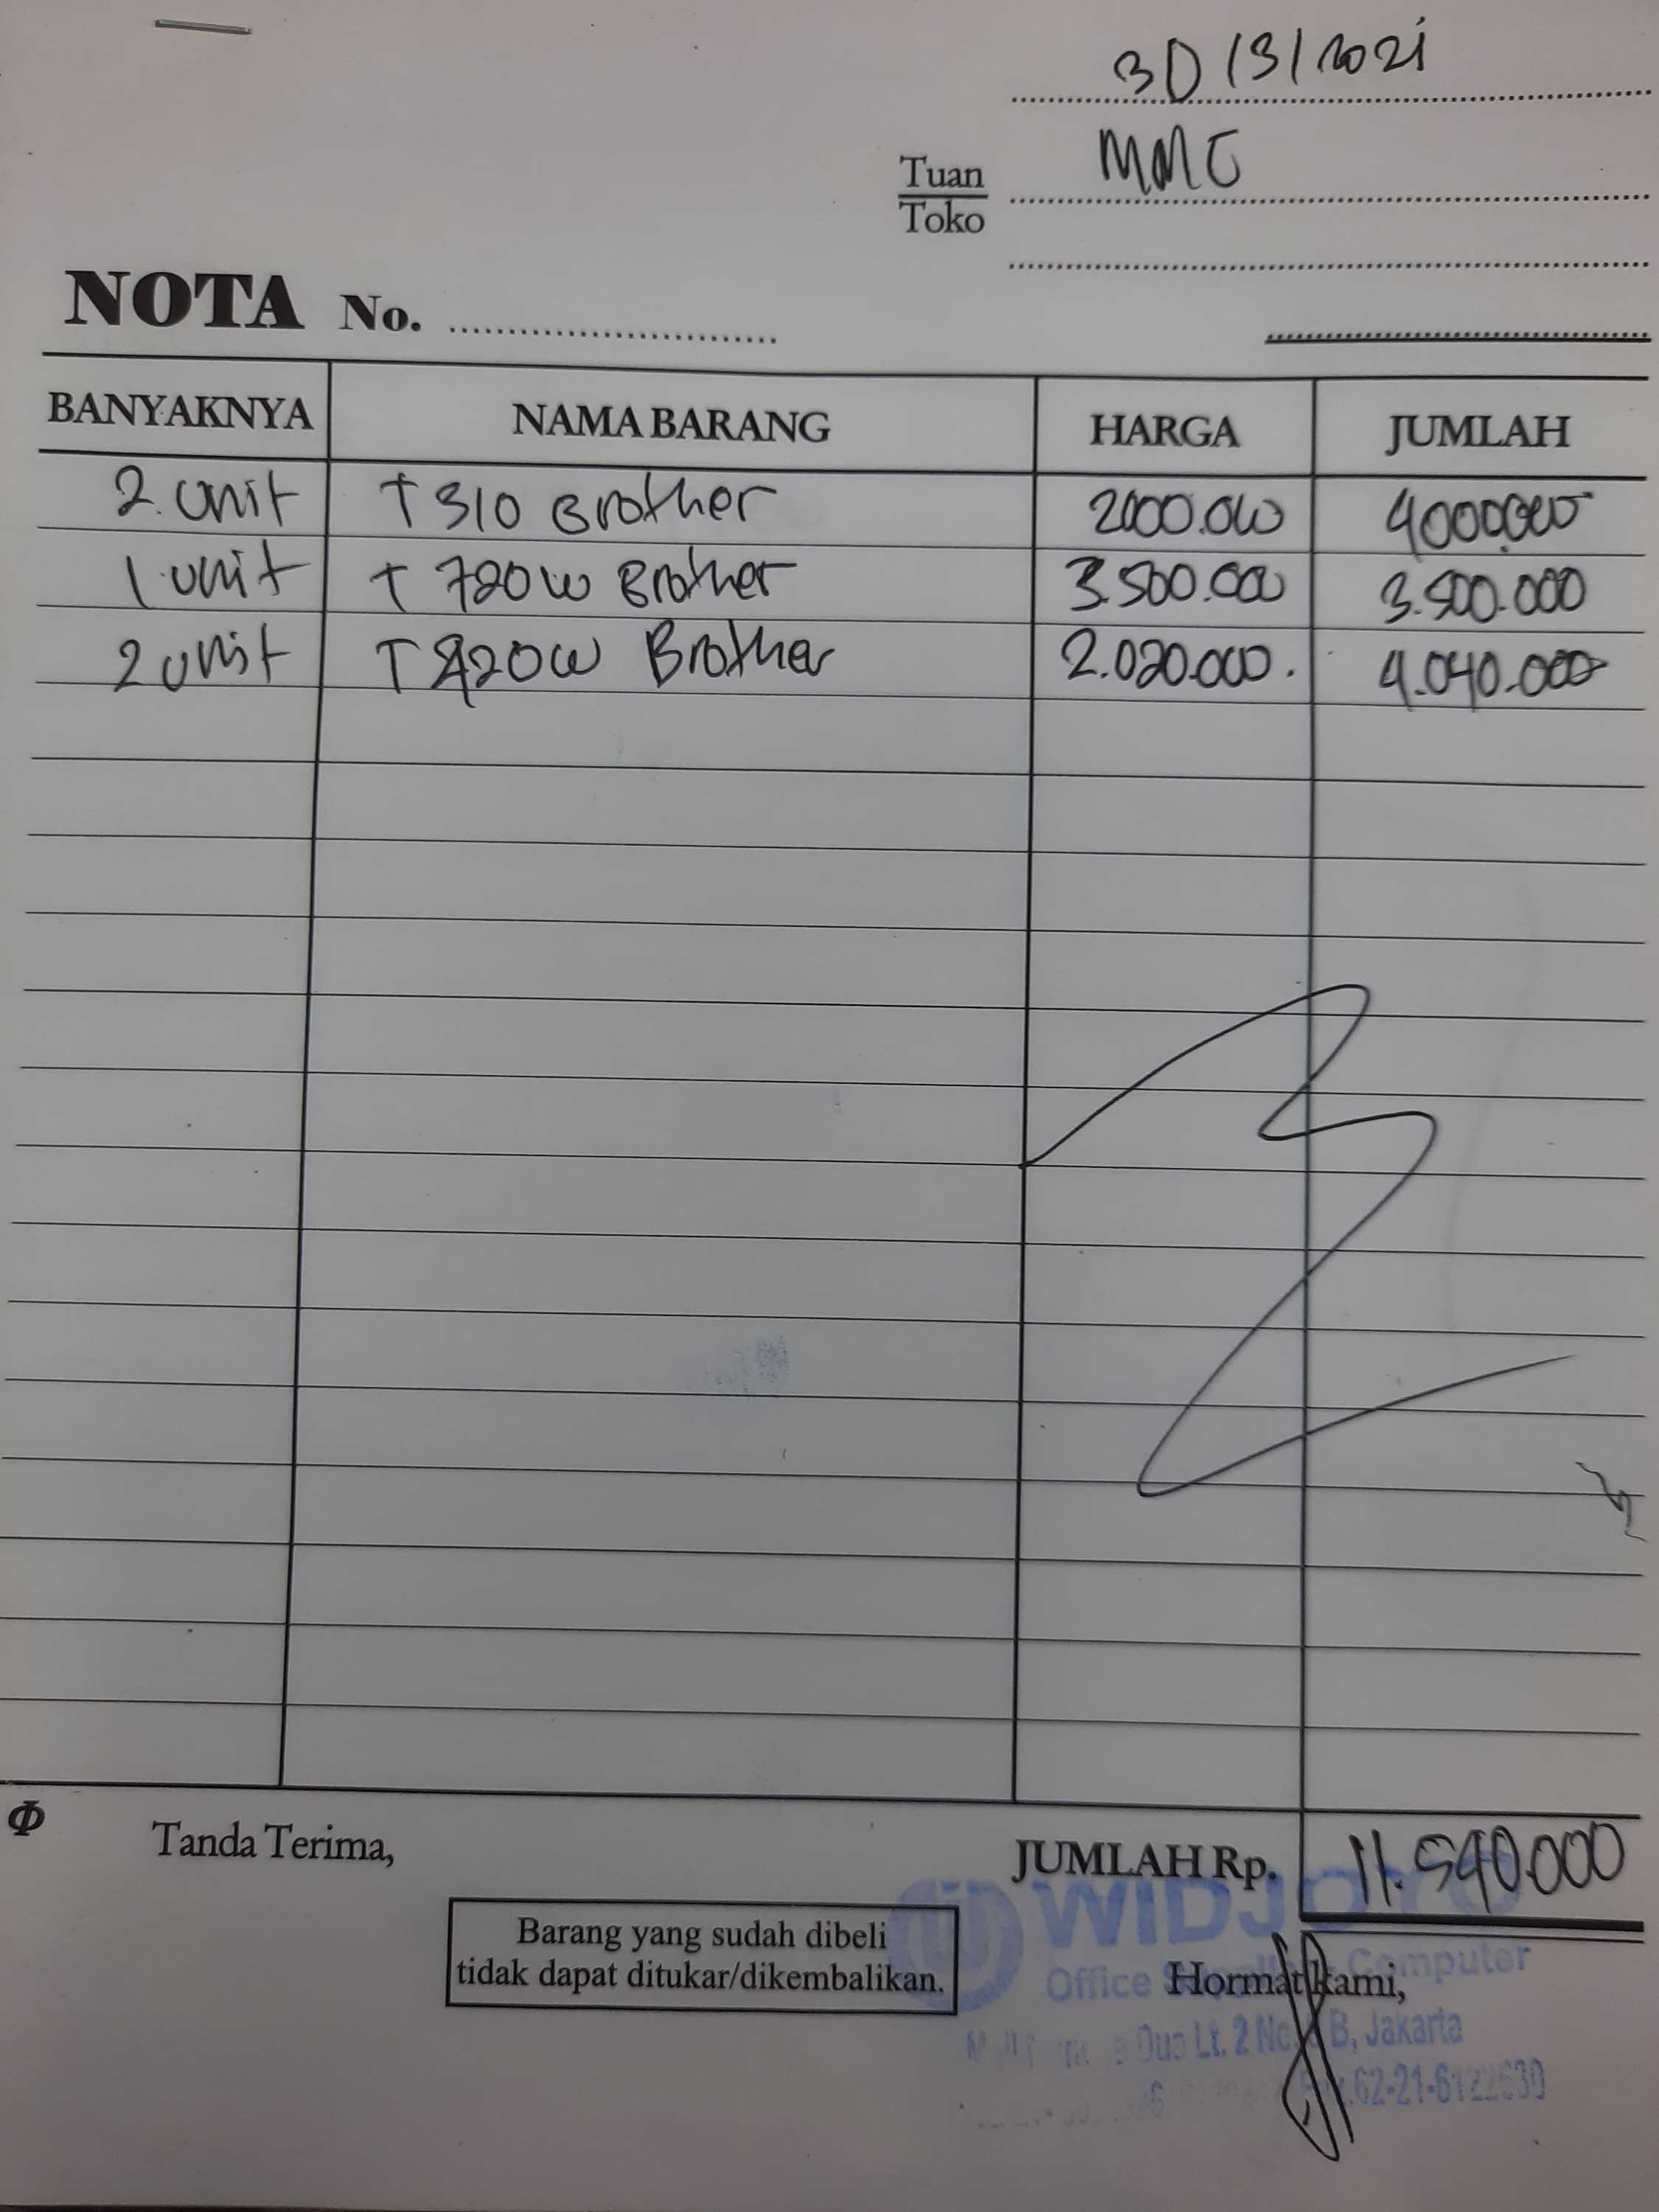 30/3/2021
Tuan MMC
Toko
NOTA No.
BANYAKNYA NAMA BARANG HARGA JUMLAH
2 unit T 310 Brother 2000.000 4000.000
1 unit T 720W Brother 3.500.000 3.500.000
2 unit T 420W Brother 2.020.000. 4.040.000
Φ Tanda Terima, JUMLAH Rp. 11.540.000
Barang yang sudah dibeli
tidak dapat ditukar/dikembalikan.
WIDJOYO
Office Computer
Hormat kami,
Dua Lt. 2 No. B, Jakarta